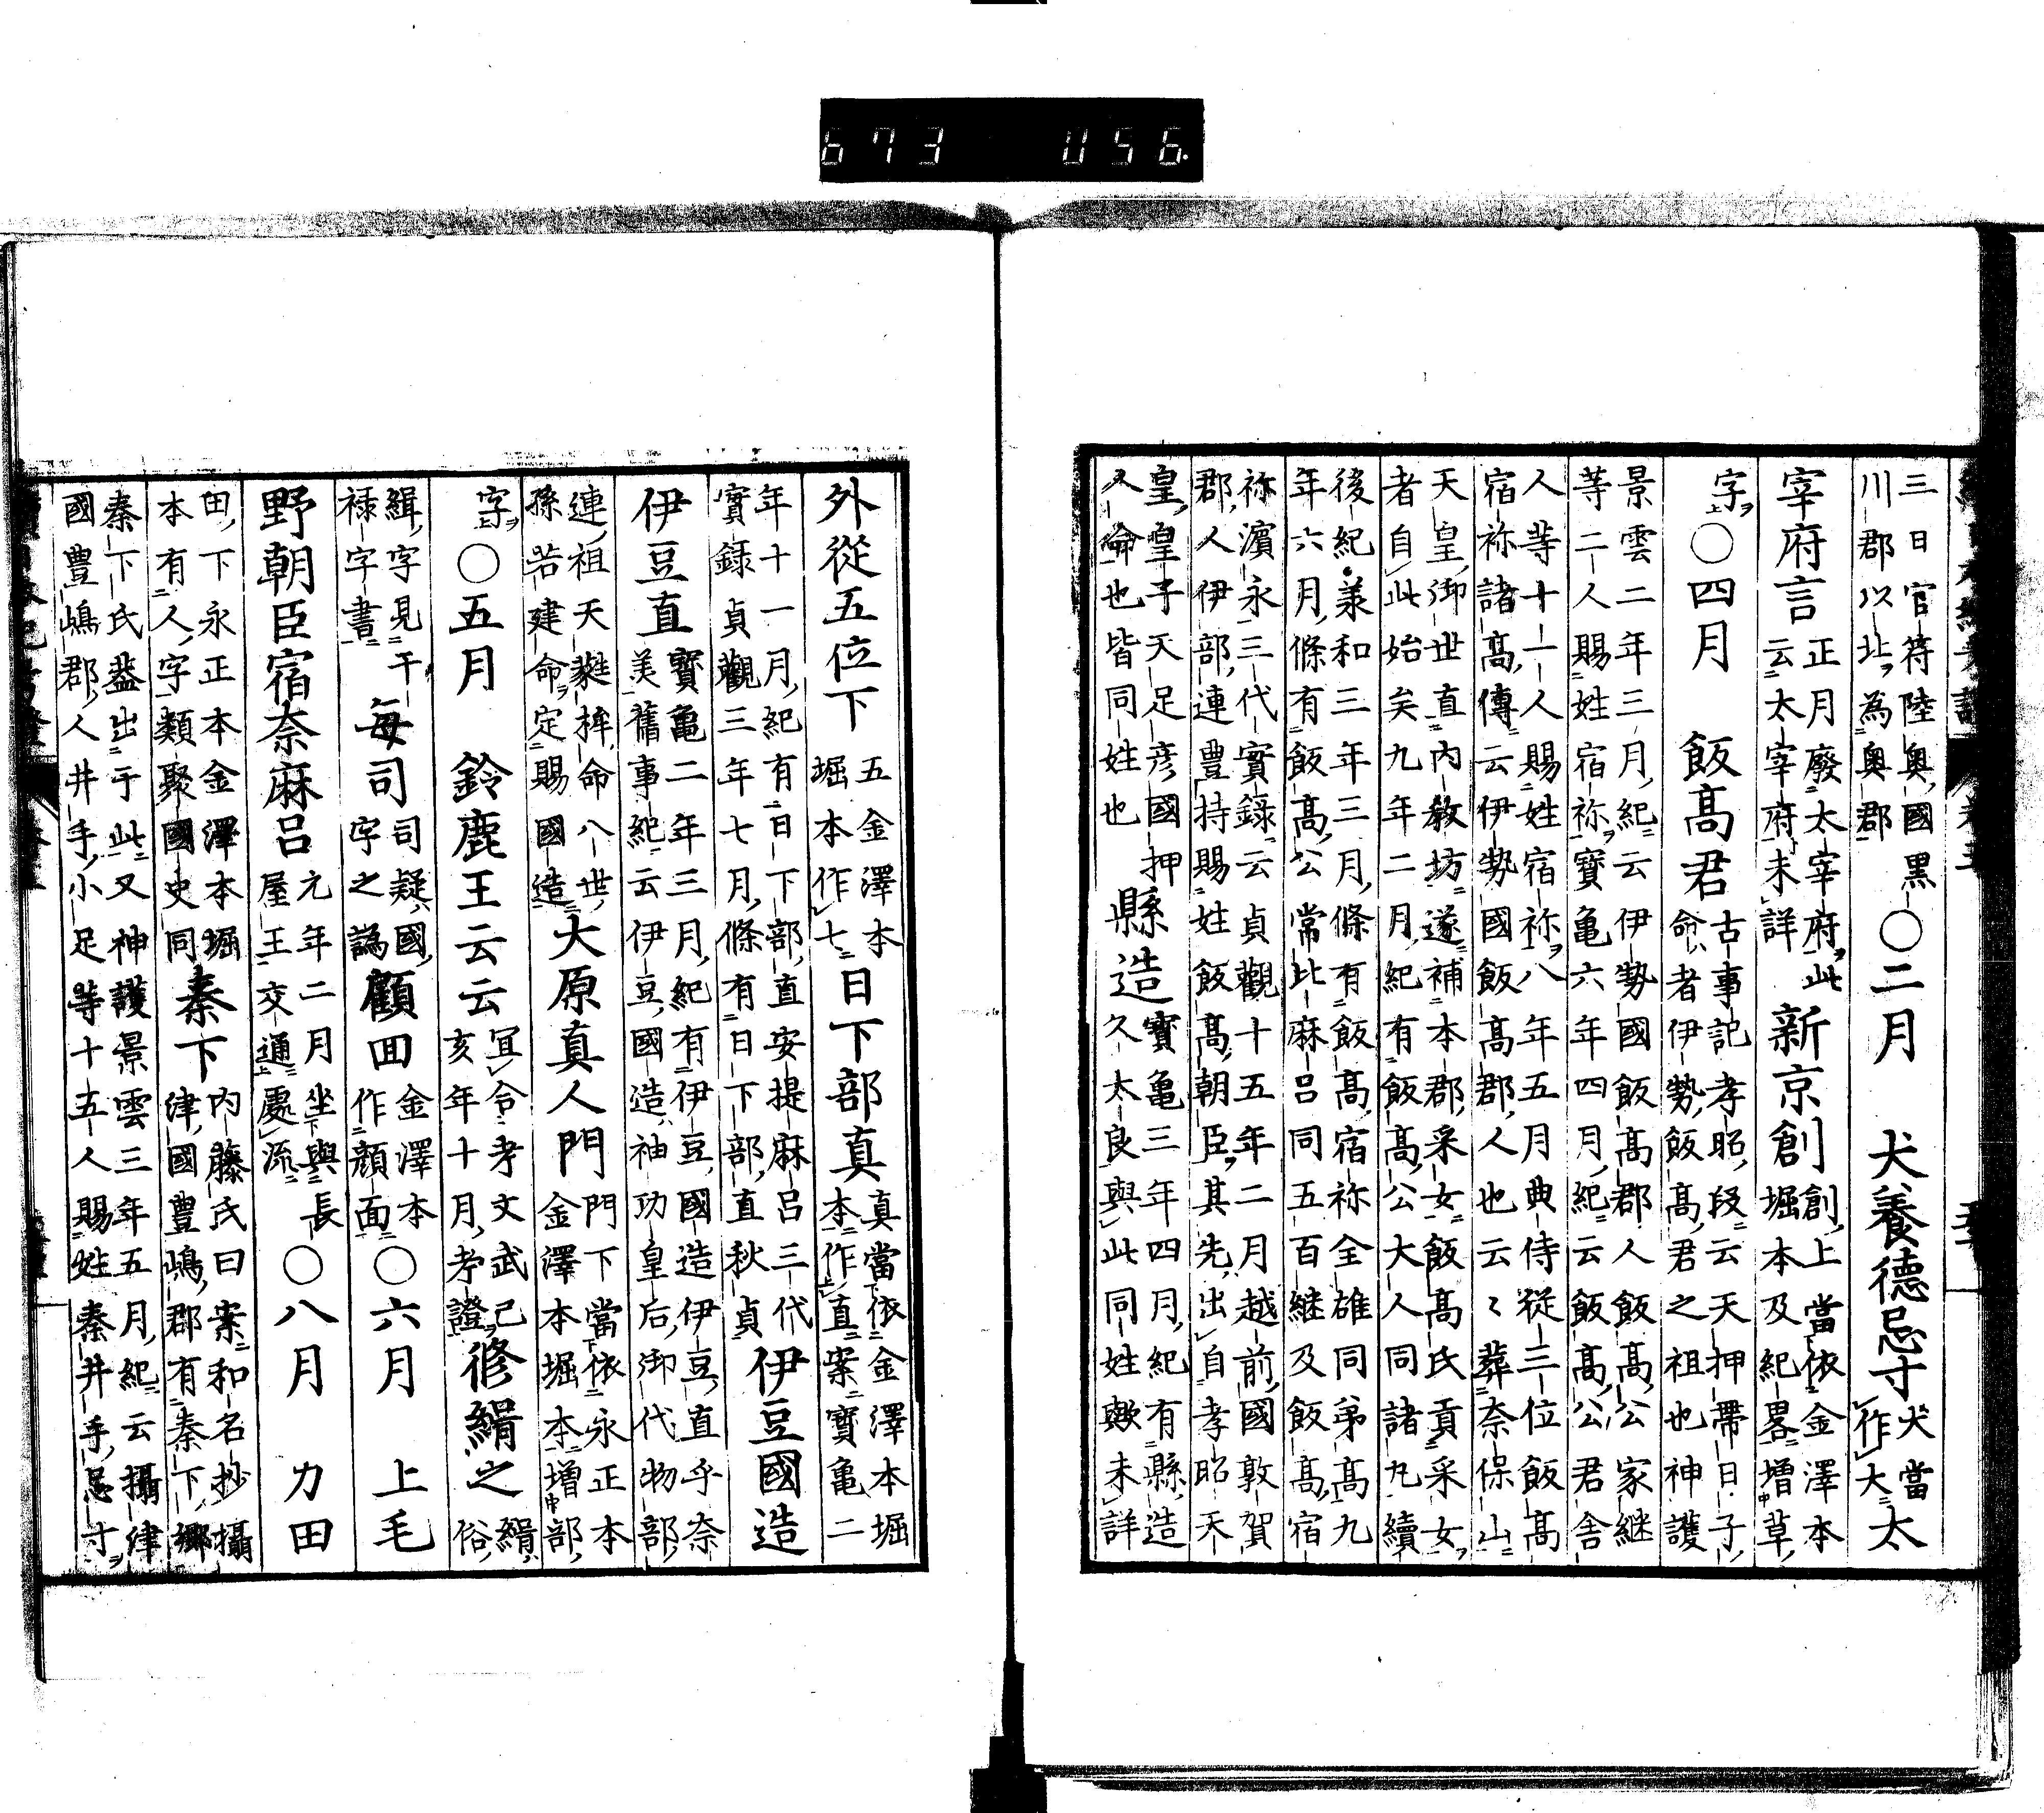 673 056.
三日官符陸奥國黒
川郡以北為奥郡
〇二月　犬養德忌寸
犬當
作大
太
宰府言
正月廢太宰府此
云太宰府未詳
新京創
創上當依金澤本
堀本及紀畧増草
字
〇四月　飯髙君
古事記孝昭段云天押帶日子
命者伊勢飯髙君之祖也神護
景雲二年三月紀云伊勢國飯髙郡人飯髙公家継
等二人賜姓宿祢寳亀六年四月紀云飯髙公君舎
人等十一人賜姓宿祢八年五月典侍従三位飯髙
宿祢諸髙傳云伊勢國飯髙郡人也云々葬奈保山
天皇御世直内教坊遂補本郡采女飯髙氏貢采女
者自此始矣九年二月紀有飯髙公大人同諸丸續
後紀羕和三年三月條有飯髙宿祢全雄同弟髙九
年六月條有飯髙公常比麻呂同五百継及飯髙宿
祢濵永三代實録云貞觀十五年二月越前國敦賀
郡人伊部連豊持賜姓飯髙朝臣其先出自孝昭天
皇皇子天足彦國押
人命也皆同姓也
縣造
寳亀三年四月紀有縣造
久太良與此同姓歟未詳
外從五位下
五金澤本
堀本作七
日下部真
真當依金澤本堀
本作直案寳亀二
年十一月紀有日下部直安提麻呂三代
實録貞觀三年七月條有日下部直秋貞
伊豆國造
伊豆直
寳亀二年三月紀有伊豆國造伊豆直乎奈
美舊事紀云伊豆國造神功皇后御代物部
連祖天蕤桙命八世
孫若建命定賜國造
大原真人門
門下當依永正本
金澤本堀本増部
字
〇五月　鈴鹿王云云
冝令考文武己
亥年十月考證
修緝之
緝俗
緝字見干
禄字書
每司
司疑國
字之譌
顧田
金澤本
作顔面
〇六月　上毛
野朝臣宿奈麻呂
元年二月坐與長
屋王交通處流
〇八月　力田
田下永正本金澤本堀
本有人字類聚國史同
秦下
内藤氏曰案和名抄攝
津國豊嶋郡有秦下郷
秦下氏葢出于此又神護景雲三年五月紀云攝津
國豊嶋郡人井手小足等十五人賜姓秦井手忌寸